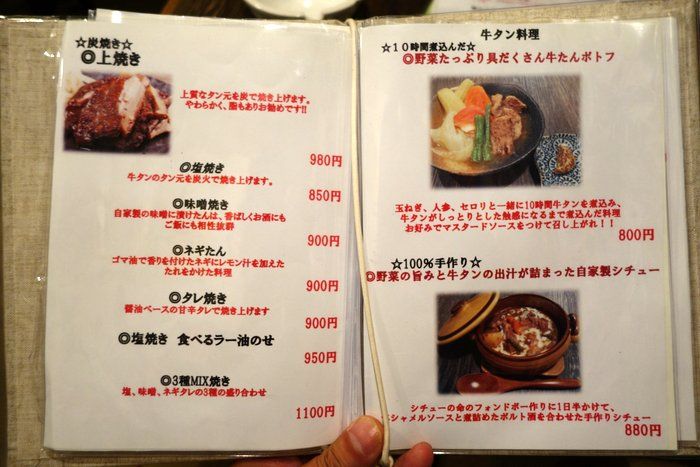 ☆炭焼き☆
◎上焼き
上質なタン元を炭で焼き上げます。
やわらかく、脂もありお勧めです!!
980円
◎塩焼き
牛タンのタン元を炭火で焼き上げます。
850円
◎味噌焼き
自家製の味噌に漬けたんは、香ばしくお酒にも
ご飯にも相性抜群
900円
◎ネギたん
ゴマ油で香りを付けたネギにレモン汁を加えた
たれをかけた料理
900円
◎タレ焼き
醤油ベースの甘辛タレで焼き上げます
900円
◎塩焼き 食べるラー油のせ
950円
◎3種MIX焼き
塩、味噌、ネギタレの3種の盛り合わせ
1100円
牛タン料理
☆10時間煮込んだ☆
◎野菜たっぷり具だくさん牛たんポトフ
玉ねぎ、人参、セロリと一緒に10時間牛タンを煮込み、
牛タンがしっとりとした触感になるまで煮込んだ料理
お好みでマスタードソースをつけて召し上がれ!!
800円
☆100%手作り☆
◎野菜の旨みと牛タンの出汁が詰まった自家製シチュー
シチューの命のフォンドボー作りに1日半かけて、
シャメルソースと煮詰めたポルト酒を合わせた手作りシチュー
880円